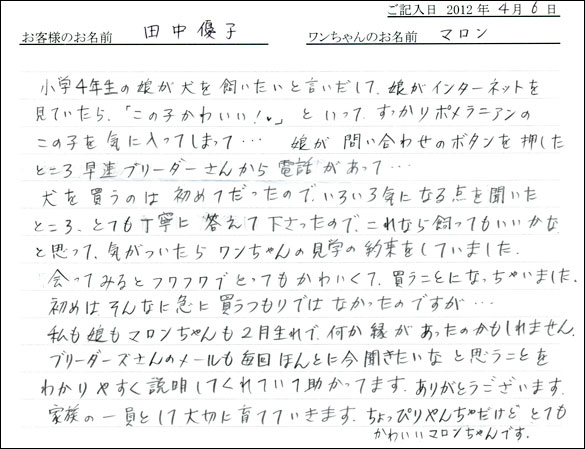 ご記入日 2012年 4月 6日
お客様のお名前 田中優子 ワンちゃんのお名前 マロン
小学4年生の娘が犬を飼いたいと言いだして、娘がインターネットを
見ていたら、「この子かわいい!♥」といって、すっかりポメラニアンの
この子を気に入ってしまって… 娘が問い合わせのボタンを押した
ところ早速ブリーダーさんから電話があって…
犬を買うのは初めてだったので、いろいろ気になる点を聞いた
ところ、とても丁寧に答えて下さったので、これなら飼ってもいいかな
と思って、気がついたらワンちゃんの見学の約束をしていました。
会ってみるとフワフワでとってもかわいくて、買うことになっちゃいました。
初めはそんなに急に買うつもりではなかったのですが…
私も娘もマロンちゃんも2月生れで、何か縁があったのかもしれません。
ブリーダーズさんのメールも毎回ほんとに今聞きたいなと思うことを
わかりやすく説明してくれていて助かってます。ありがとうございます。
家族の一員として大切に育てていきます。ちょっぴりやんちゃだけどとても
かわいいマロンちゃんです。